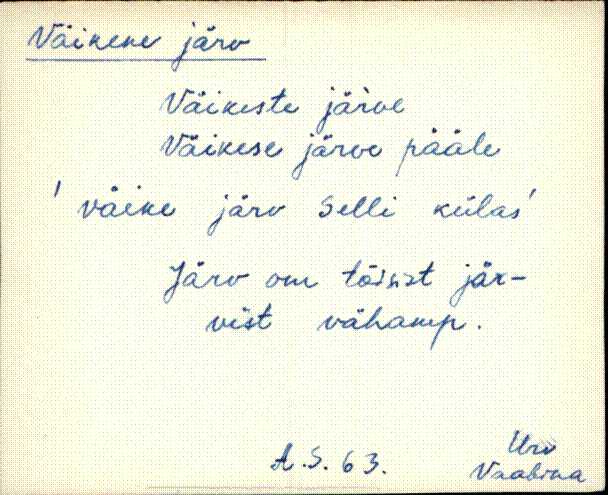 Väikene järv
Väikeste järve
Väikese järve pääle
'väike järv Selli külas'
Järv om tõisist jär-
vist vähamp.
A.S. 63.
Urv
Vaabina